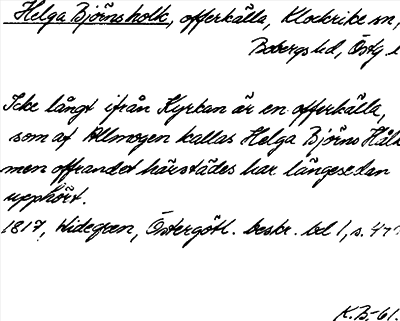 Helga Björns holk, offerkälla, Klockrike sn,
Bobergs hd, Östg
Icke långt ifrån Kyrkan är en offerkälla,
som af Allmogen kallas Helga Björns
men offrandet härstädes har längesedan
upphört.
1817, Widegren, Östergötl. beskr. bd 1, s.
K.B.-61.